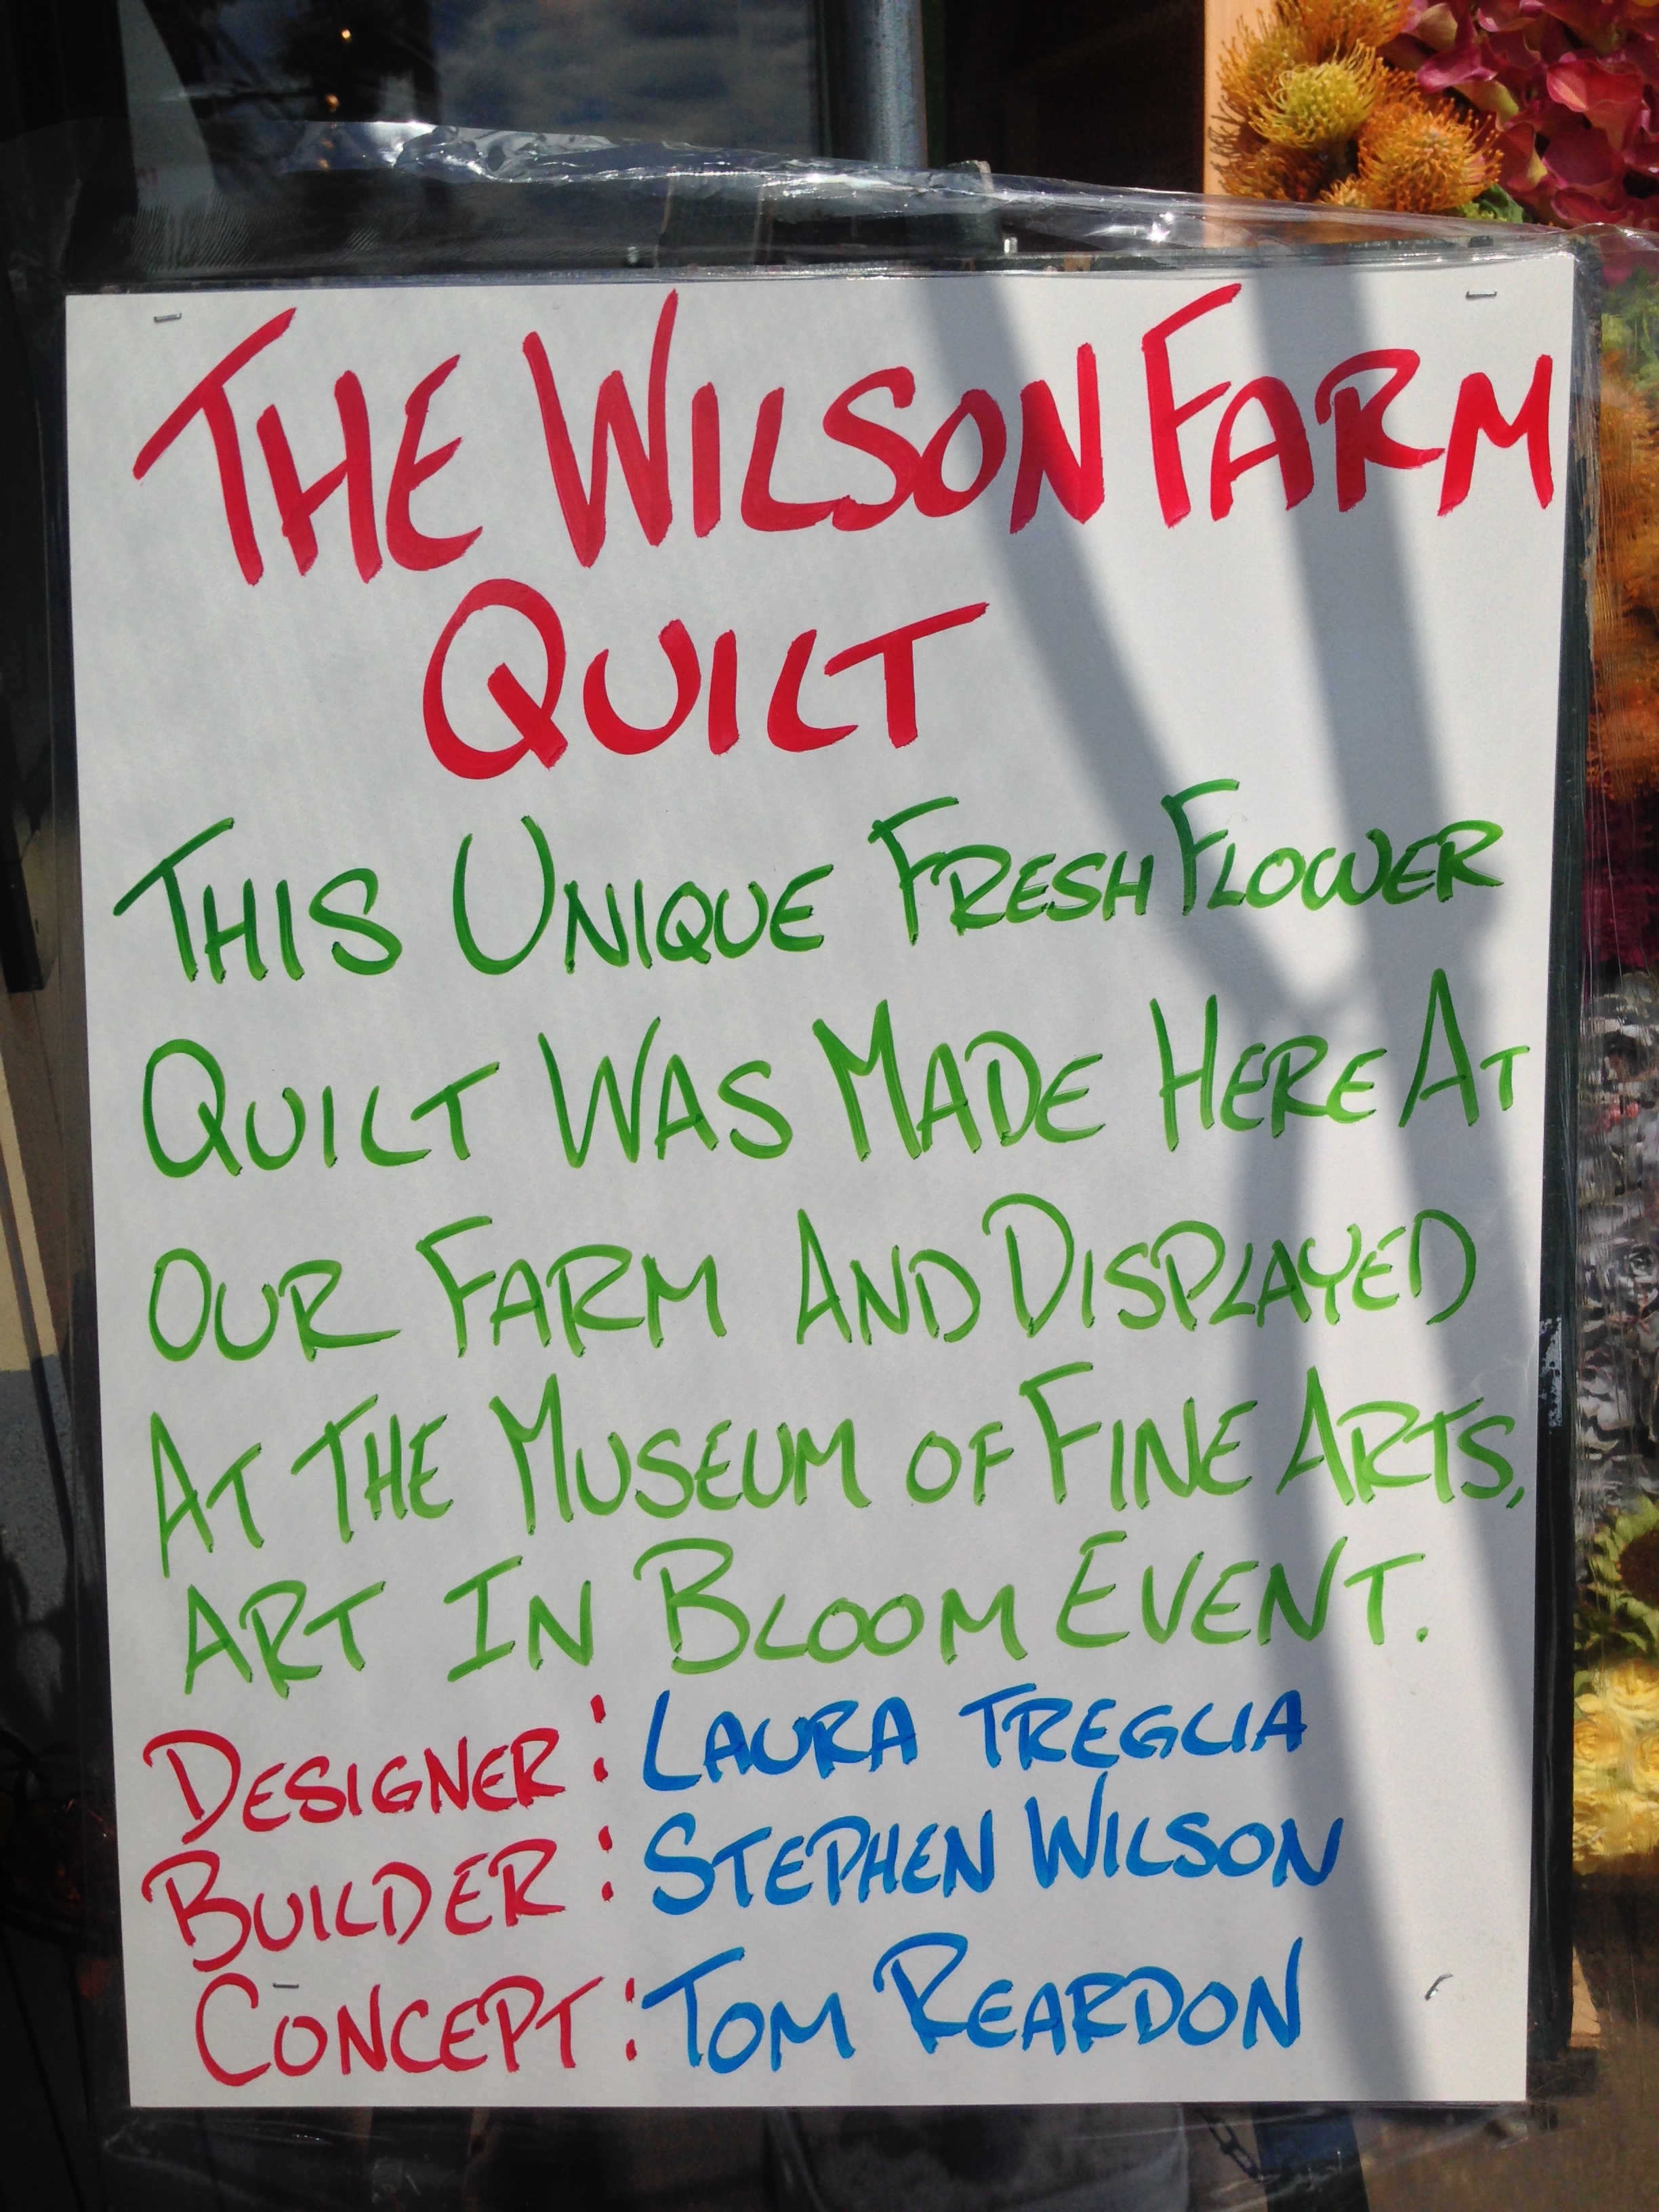 THE WILSON FARM
QUILT
THIS UNIQUE FRESH FLOWER
QUILT WAS MADE HERE AT
OUR FARM AND DISPLAYED
AT THE MUSEUM OF FINE ARTS,
ART IN BLOOM EVENT.
DESIGNER: LAURA TREGLIA
BUILDER: STEPHEN WILSON
CONCEPT: TOM REARDON